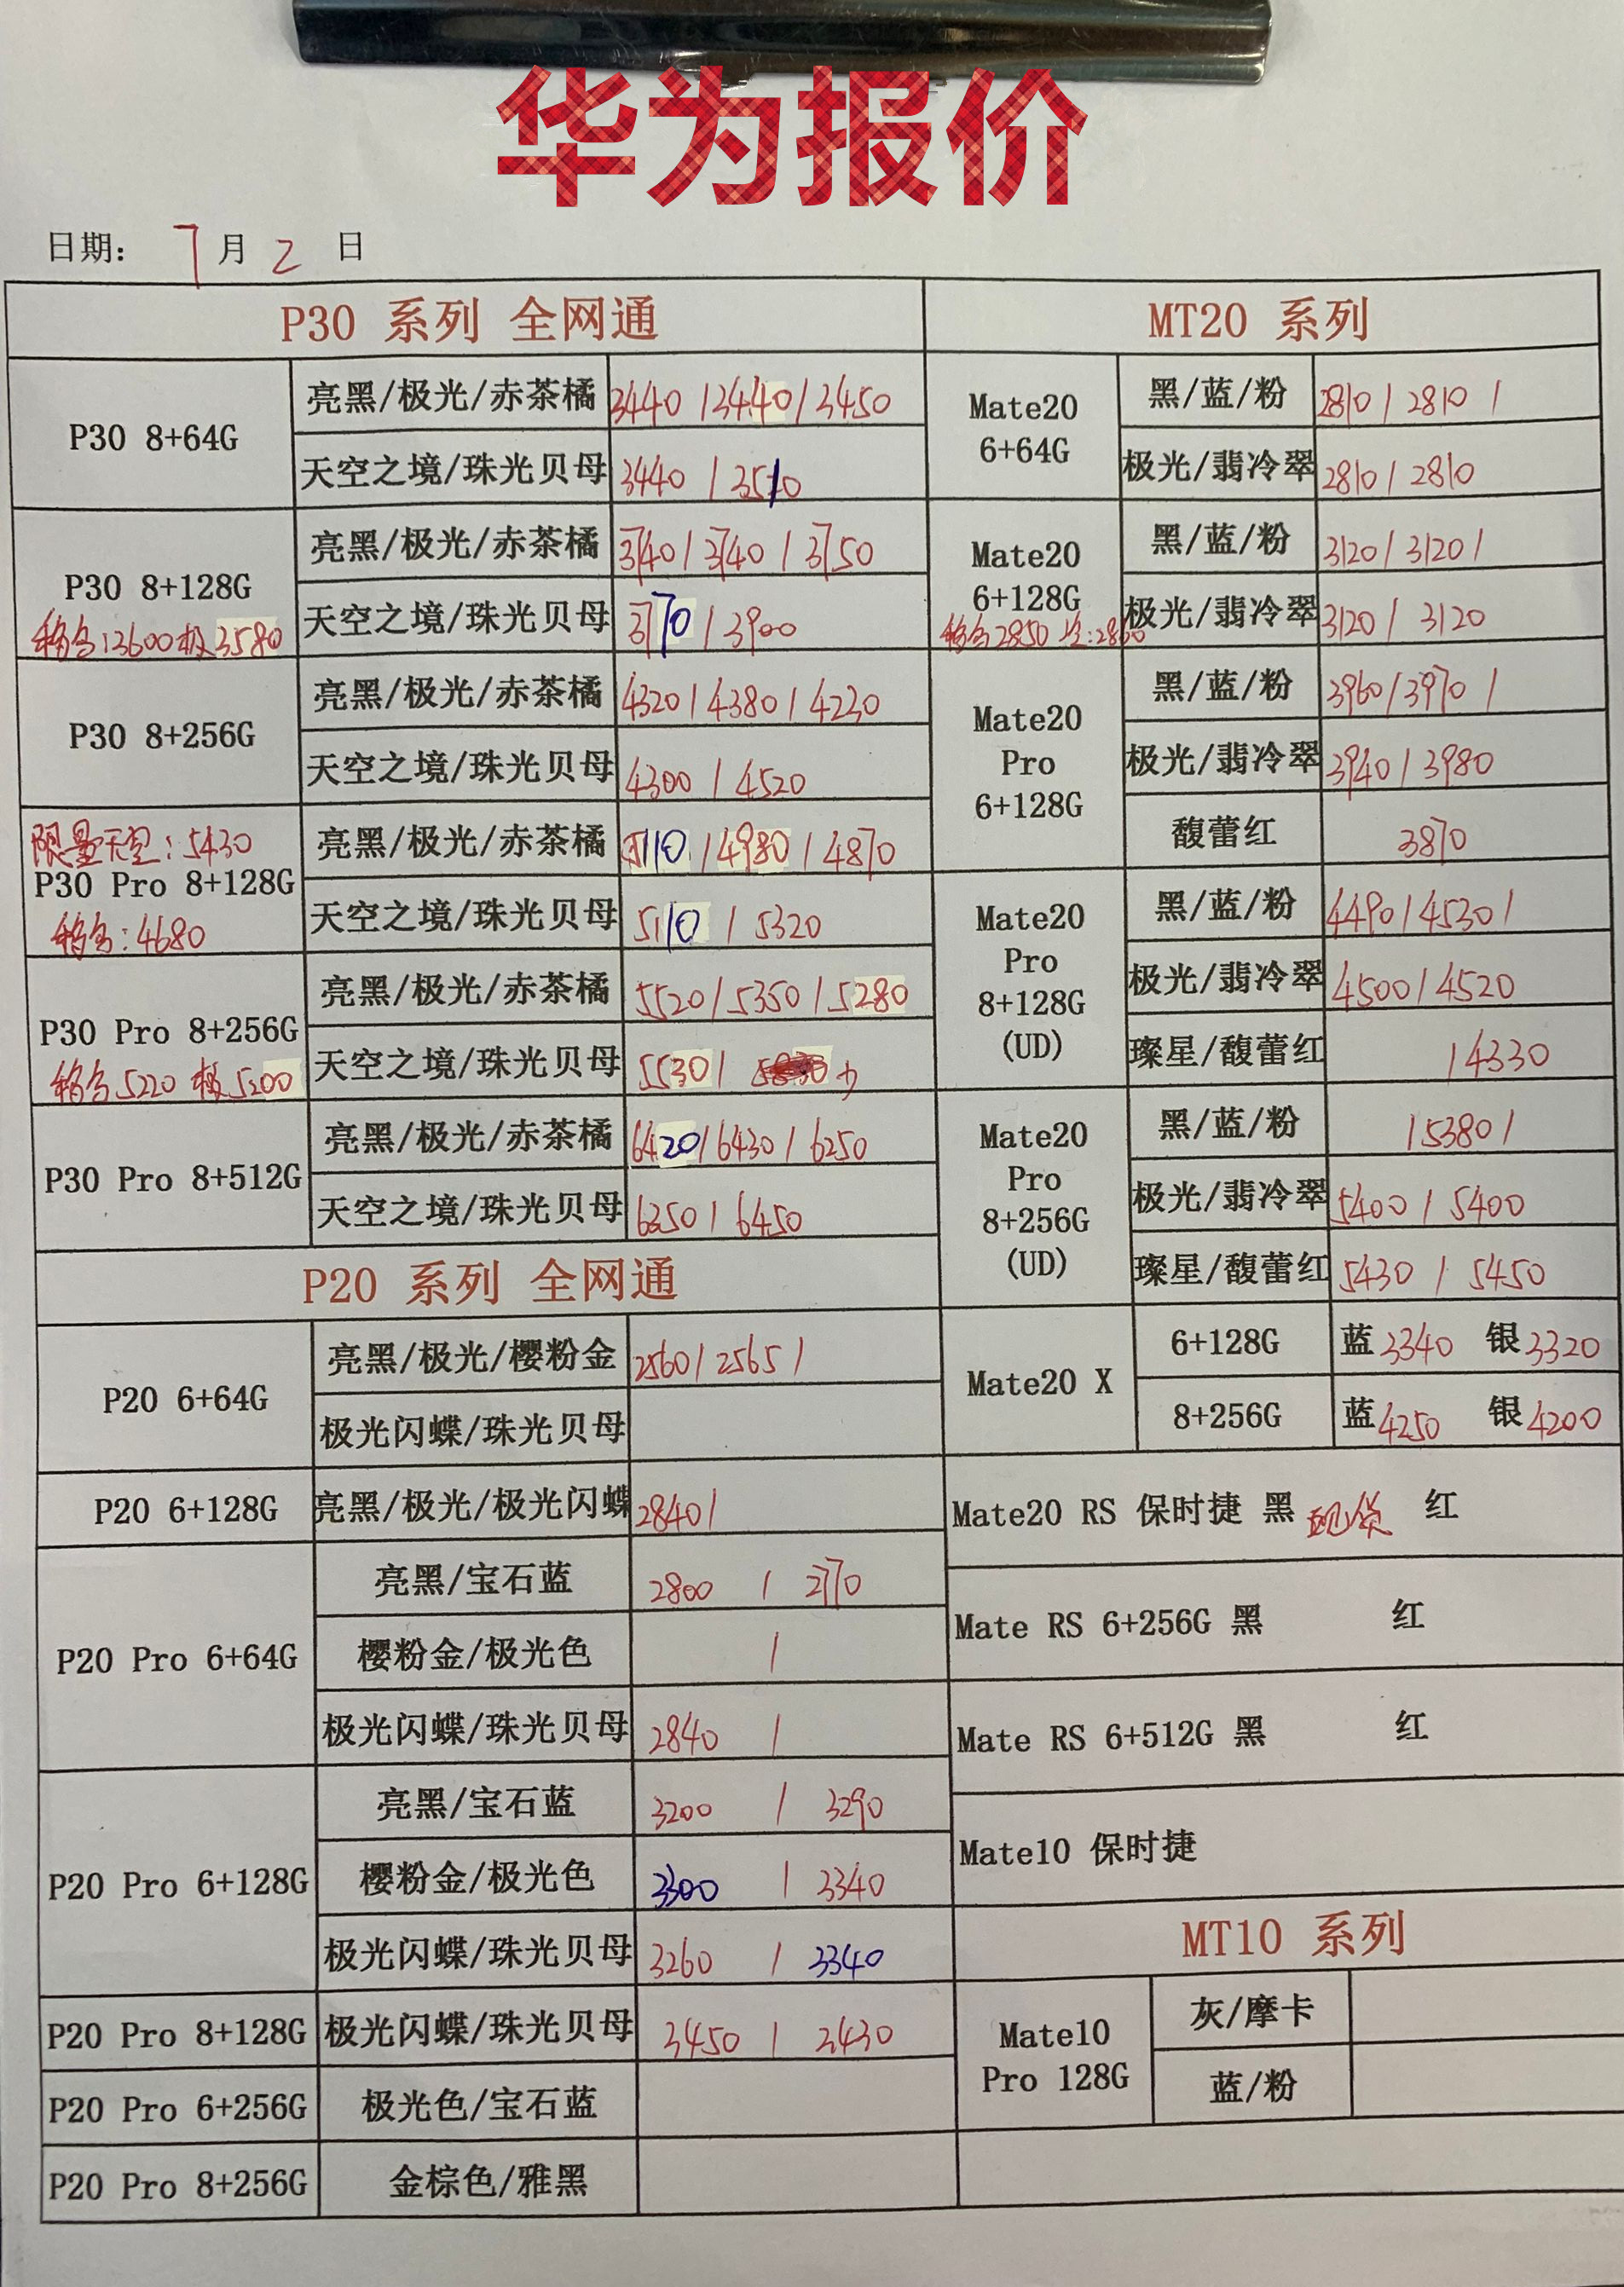 华为报价
日期: 7 月 2 日
P30 系列 全网通
P30 8+64G
亮黑/极光/赤茶橘 3440 / 3440 / 3450
天空之境/珠光贝母 3440 / 3510
P30 8+128G
移合:3600 极3580
亮黑/极光/赤茶橘 3740 / 3740 / 3750
天空之境/珠光贝母 3770 / 3900
P30 8+256G
亮黑/极光/赤茶橘 4320 / 4380 / 4230
天空之境/珠光贝母 4300 / 4520
限量天空:5430
P30 Pro 8+128G
移合:4680
亮黑/极光/赤茶橘 5110 / 4980 / 4870
天空之境/珠光贝母 5110 / 5320
P30 Pro 8+256G
移合5220 极5200
亮黑/极光/赤茶橘 5520 / 5350 / 5280
天空之境/珠光贝母 5530 /
P30 Pro 8+512G
亮黑/极光/赤茶橘 6420 / 6430 / 6250
天空之境/珠光贝母 6350 / 6450
P20 系列 全网通
P20 6+64G
亮黑/极光/樱粉金 2560 / 2565 /
极光闪蝶/珠光贝母
P20 6+128G
亮黑/极光/极光闪蝶 2840 /
P20 Pro 6+64G
亮黑/宝石蓝 2800 / 2770
樱粉金/极光色 /
极光闪蝶/珠光贝母 2840 /
P20 Pro 6+128G
亮黑/宝石蓝 3200 / 3290
樱粉金/极光色 3300 / 3340
极光闪蝶/珠光贝母 3260 / 3340
P20 Pro 8+128G
极光闪蝶/珠光贝母 3450 / 3430
P20 Pro 6+256G
极光色/宝石蓝
P20 Pro 8+256G
金棕色/雅黑
MT20 系列
Mate20
6+64G
黑/蓝/粉 2810 / 2810 /
极光/翡冷翠 2810 / 2810
Mate20
6+128G
移合2850
黑/蓝/粉 3120 / 3120 /
极光/翡冷翠 3120 / 3120
Mate20
Pro
6+128G
黑/蓝/粉 3960 / 3970 /
极光/翡冷翠 3940 / 3980
馥蕾红 3870
Mate20
Pro
8+128G
(UD)
黑/蓝/粉 4490 / 4530 /
极光/翡冷翠 4500 / 4520
璨星/馥蕾红 / 4330
Mate20
Pro
8+256G
(UD)
黑/蓝/粉 / 5380 /
极光/翡冷翠 5400 / 5400
璨星/馥蕾红 5430 / 5450
Mate20 X
6+128G 蓝 3340 银 3320
8+256G 蓝 4250 银 4200
Mate20 RS 保时捷 黑 现货 红
Mate RS 6+256G 黑 红
Mate RS 6+512G 黑 红
Mate10 保时捷
MT10 系列
Mate10
Pro 128G
灰/摩卡
蓝/粉